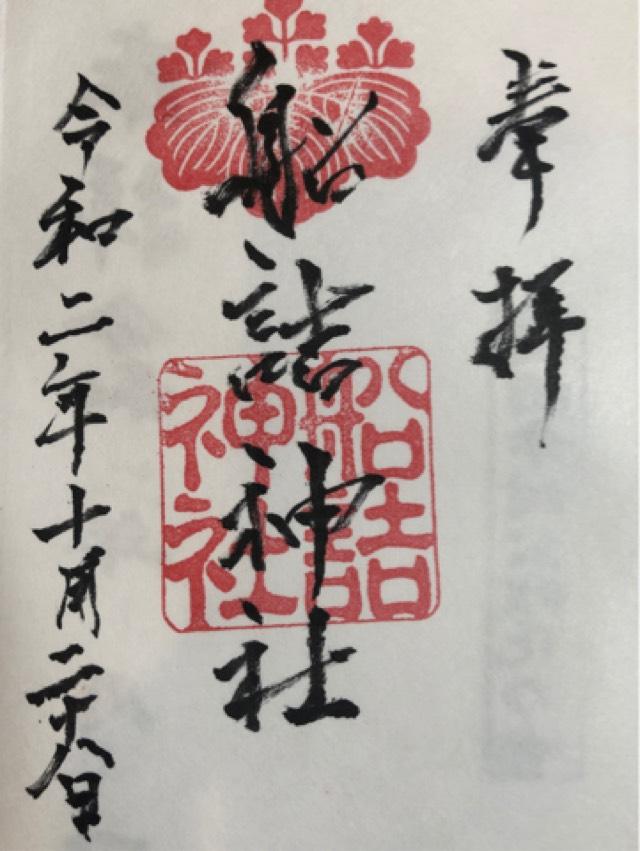 奉拝
船詰神社
船詰
神社
令和二年十月二十八日